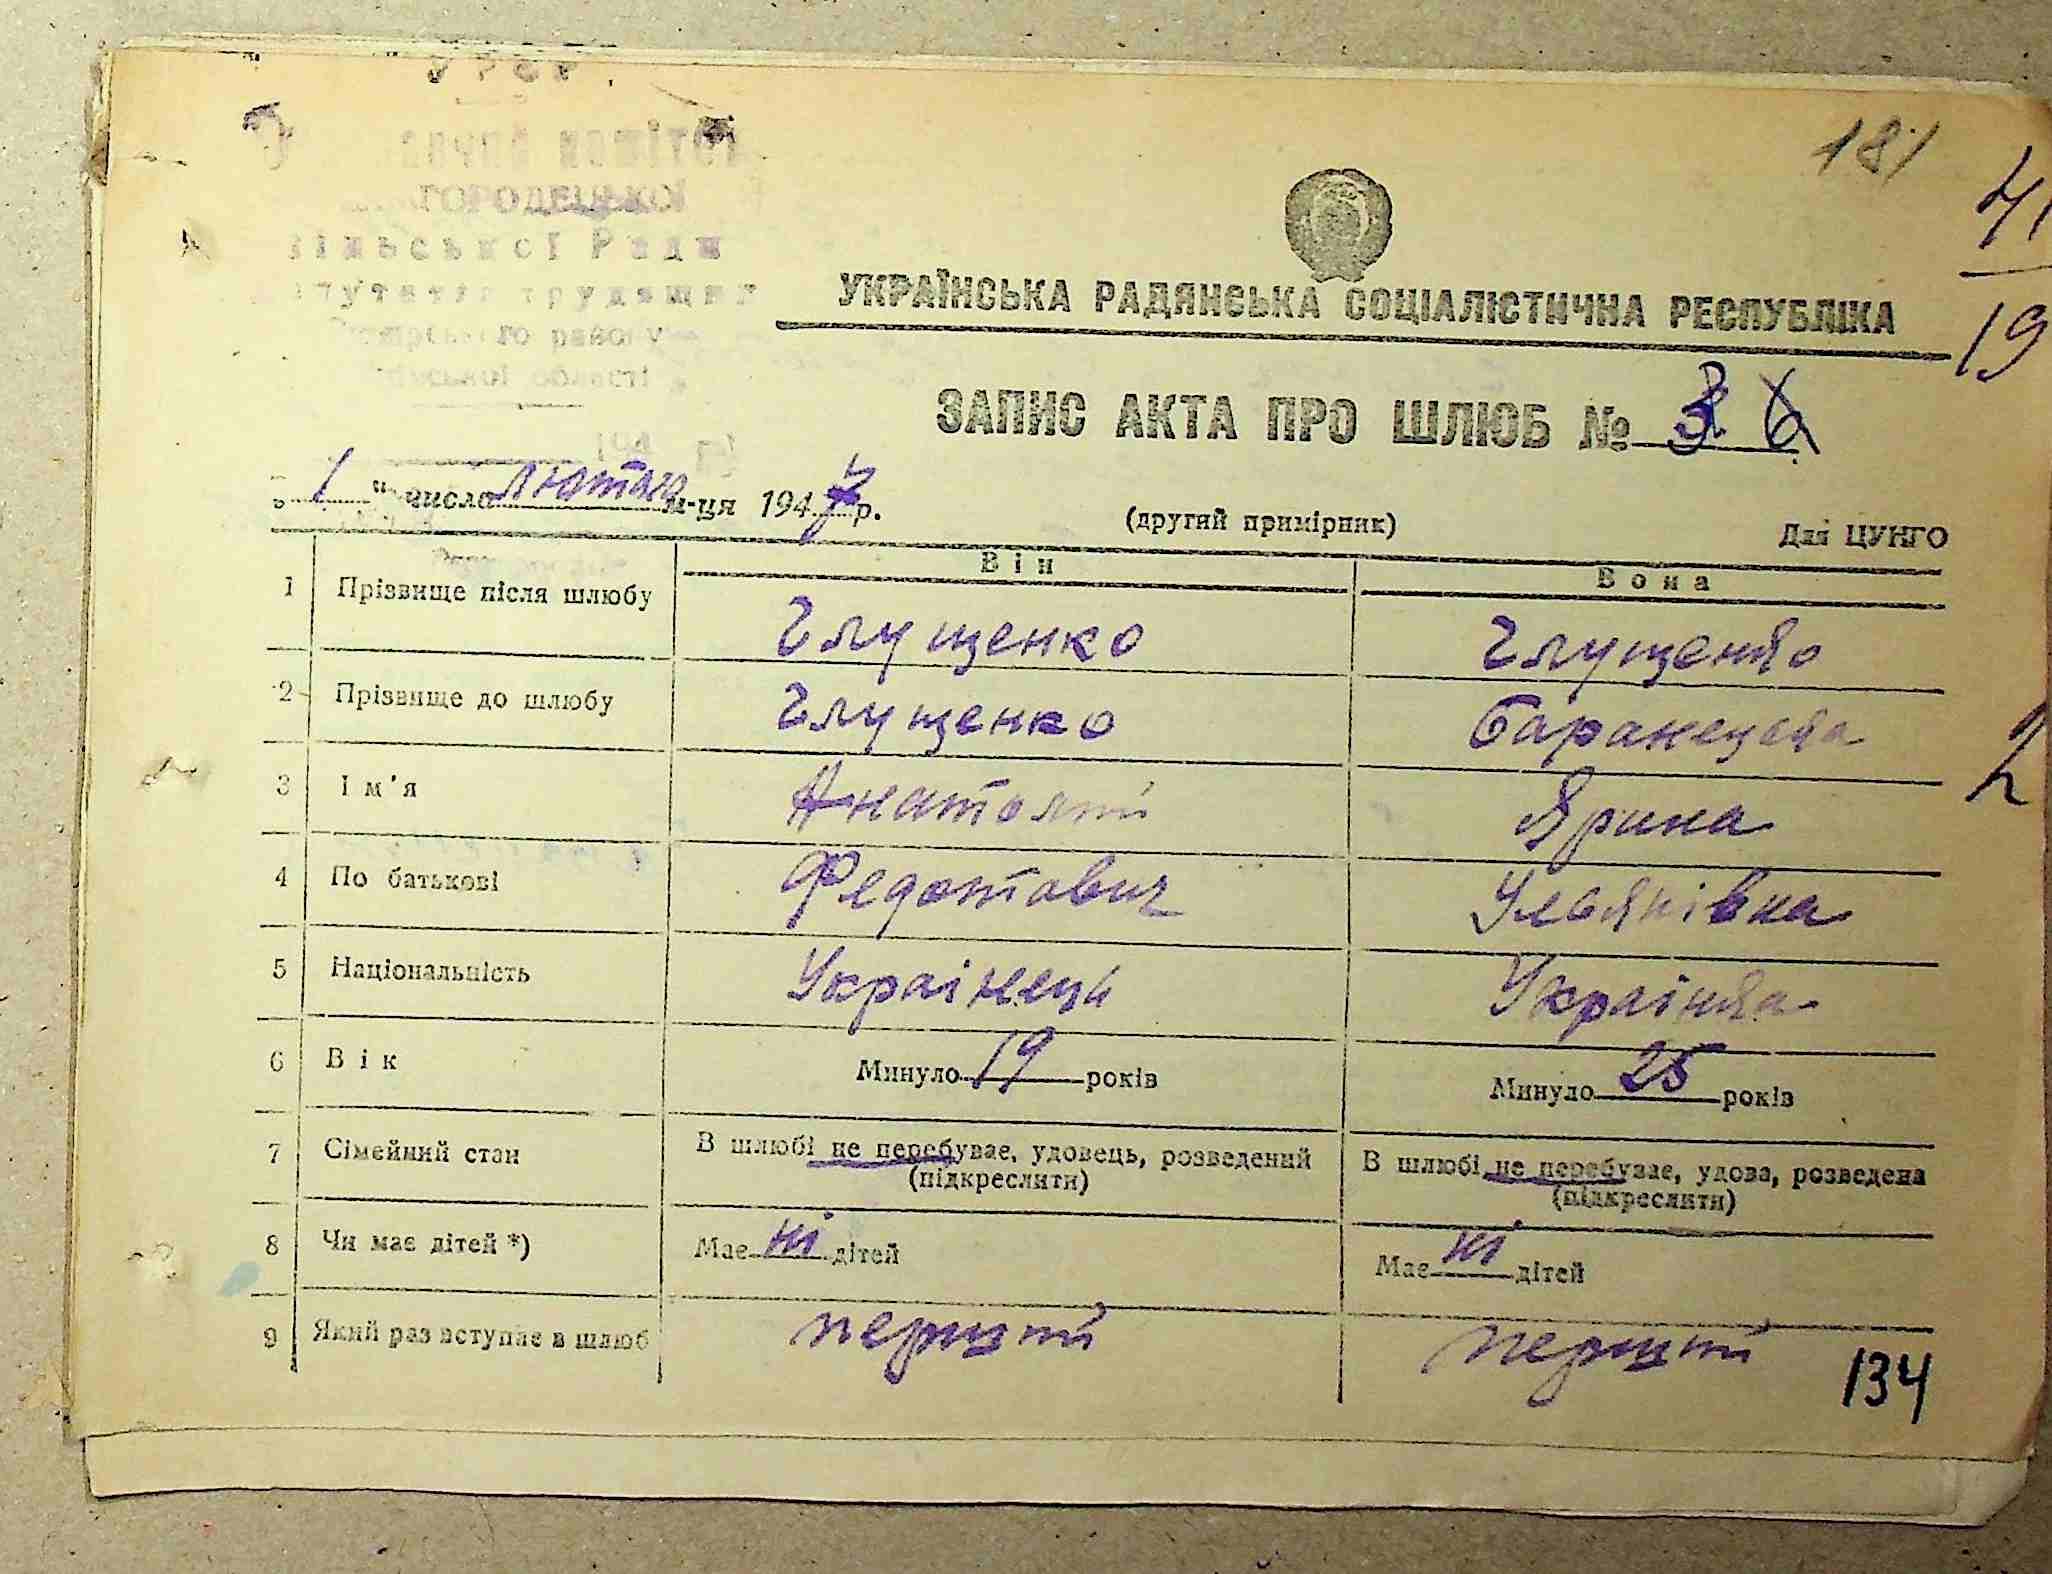 УРСР
комітет
ГОРОДЕЦЬКОЇ
сільської Ради
депутатів трудящих
району
області
194
181
71
19
УКРАЇНСЬКА РАДЯНСЬКА СОЦІАЛІСТИЧНА РЕСПУБЛІКА
ЗАПИС АКТА ПРО ШЛЮБ № 3
„ 1 " числа лютого м-ця 1947 р.
(другий примірник) Для ЦУНГО
Він Вона
1 Прізвище після шлюбу Глущенко Глущенко
2 Прізвище до шлюбу Глущенко Баранецька
3 Ім'я Анатолій Ярина
4 По батькові Федотович Ульянівна
5 Національність Українець Українка
6 Вік Минуло 19 років Минуло 25 років
7 Сімейний стан В шлюбі не перебуває, удовець, розведений В шлюбі не перебуває, удова, розведена
(підкреслити) (підкреслити)
8 Чи має дітей *) Має ні дітей Має ні дітей
9 Який раз вступає в шлюб перший перший
134